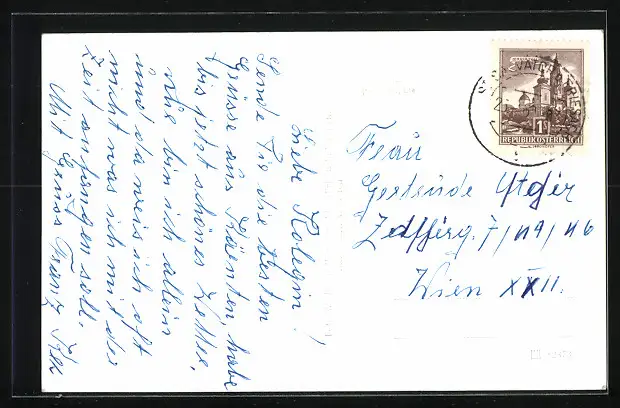 Liebe Kolegin!
Sende Sie die besten
Grüsse aus Kärnten, habe
bis jetzt schönes Zetter,
nur bin ich allein
und da weis ich oft
nicht was ich mit der
Zeit anfangen soll.
Mit Gruss Franz
REPUBLIK ÖSTERREICH
1
Frau
Gertrude
Wien XXII.